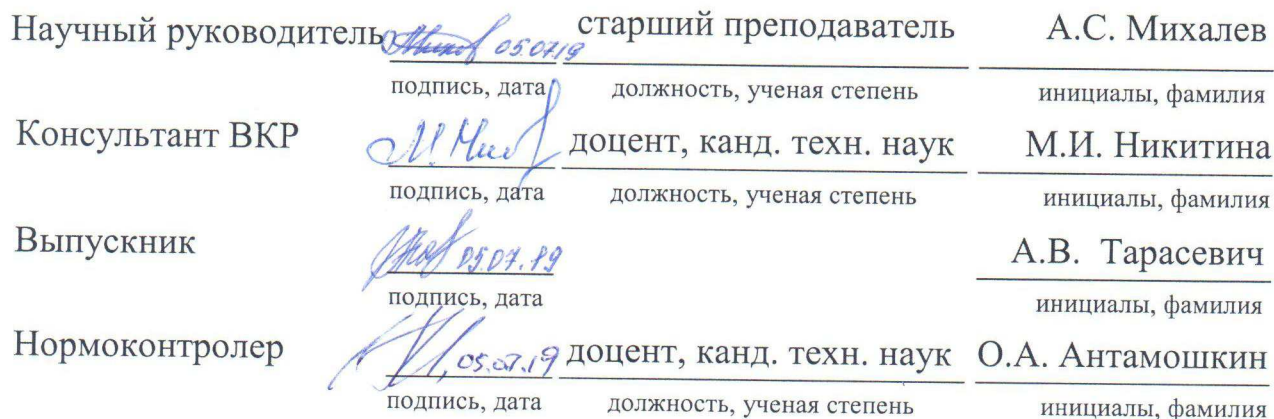 Научный руководитель 05.07.19 старший преподаватель А.С. Михалев
подпись, дата должность, ученая степень инициалы, фамилия
Консультант ВКР доцент, канд. техн. наук М.И. Никитина
подпись, дата должность, ученая степень инициалы, фамилия
Выпускник 05.07.19 А.В. Тарасевич
подпись, дата инициалы, фамилия
Нормоконтролер 05.07.19 доцент, канд. техн. наук О.А. Антамошкин
подпись, дата должность, ученая степень инициалы, фамилия